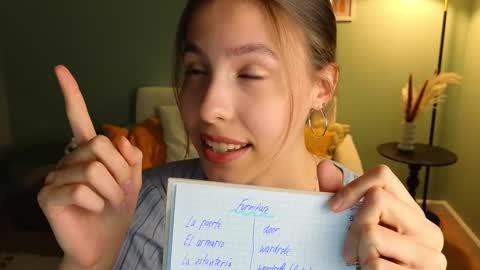 Furniture
La puerta door
El armario wardrobe
La estantería